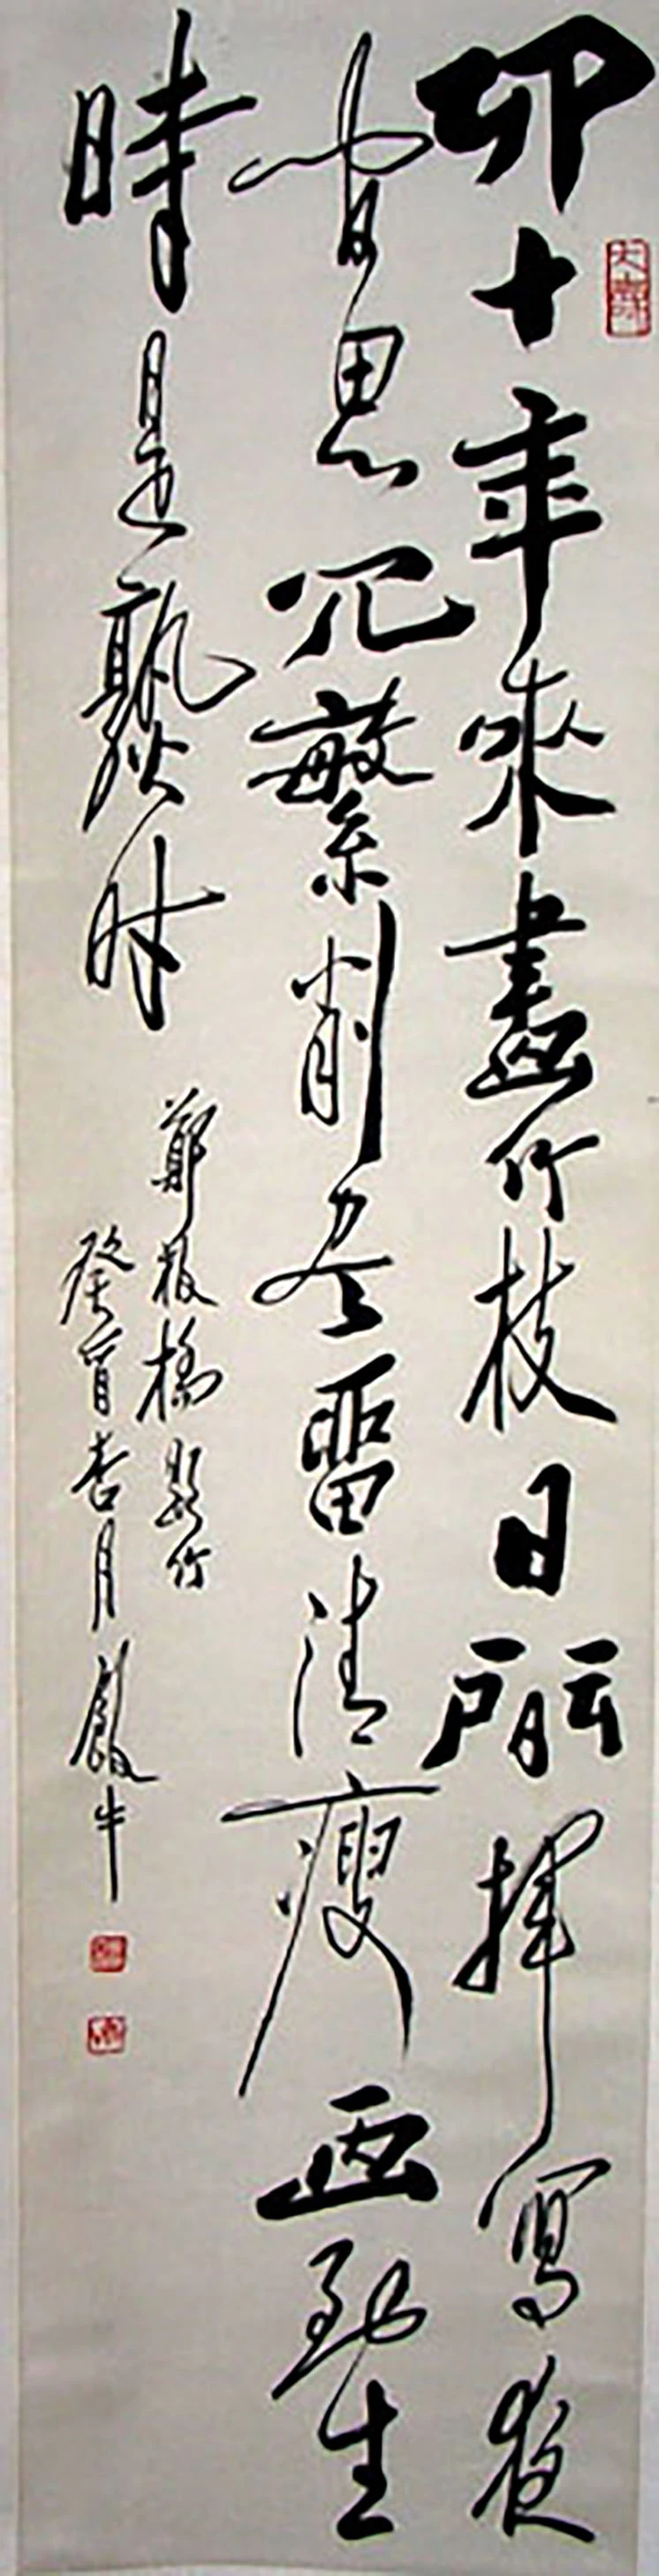 四十年來畫竹枝日間揮寫夜
間思冗繁削尽留清瘦画到生
時是熟時
鄭板橋題竹
癸酉杏月